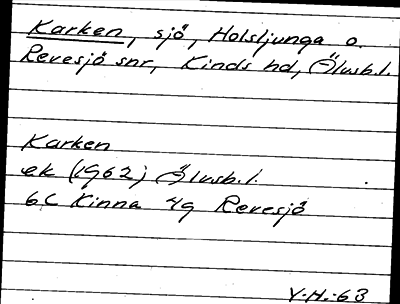 Karken, sjö, Holsljunga o.
Revesjö snr, Kinds hd, Älvsb.l.
Karken
ek (1962) Älvsb.l.
6C Kinna 4g Revesjö
V.H.-63